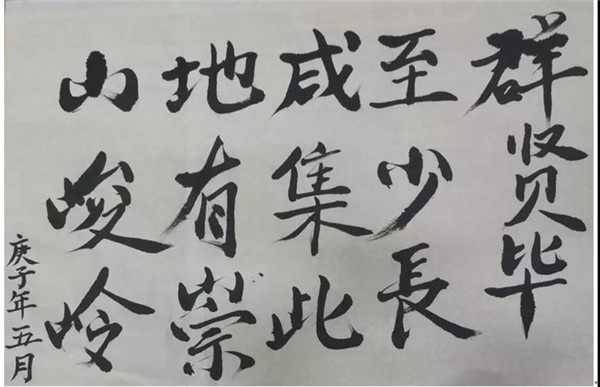 群贤毕
至少長
咸集此
地有崇
山峻岭
庚子年五月